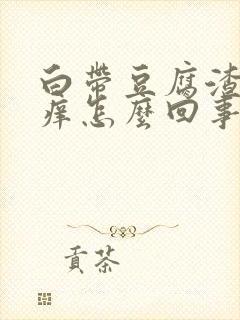 白带豆腐渣
痒怎麼回事
贡茶